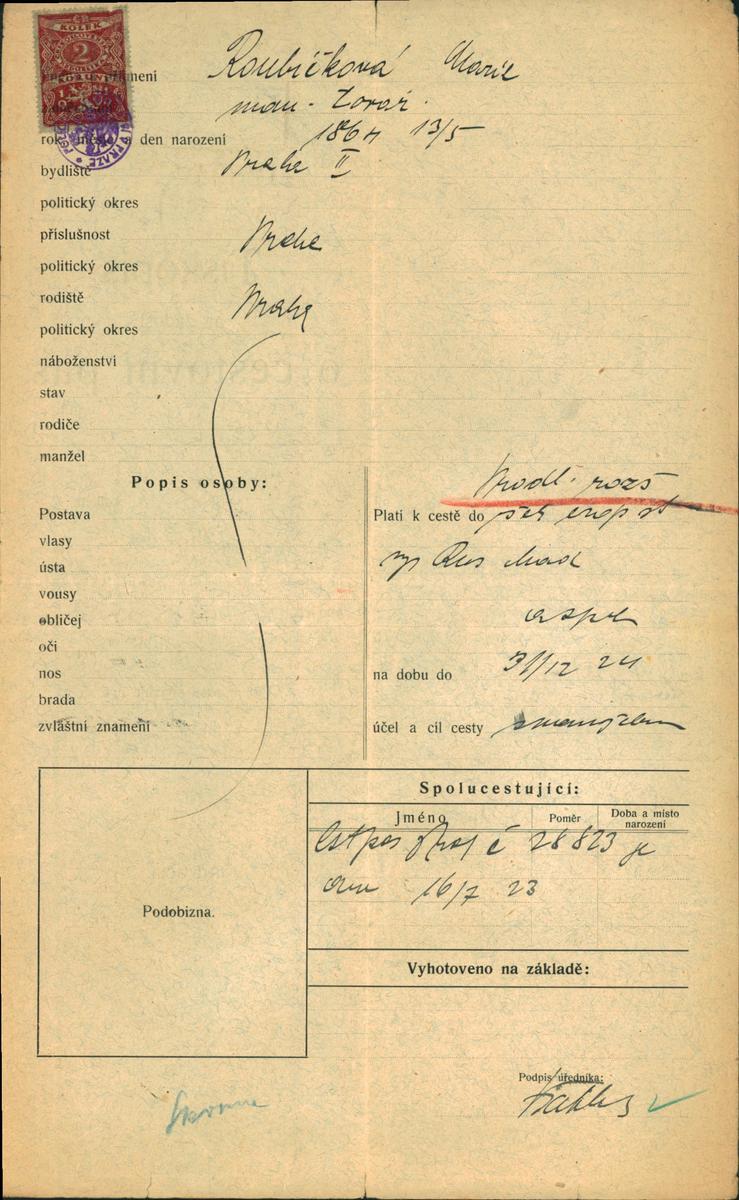 KOLEK
2
jméno a příjmení Roubíčková Marie
man. továr.
rok, měsíc a den narození 1864 13/5
bydliště Praha II
politický okres
příslušnost Praha
politický okres
rodiště Praha
politický okres
náboženství
stav
rodiče
manžel
Popis osoby:
Postava
vlasy
ústa
vousy
obličej
oči
nos
brada
zvláštní znamení
Prodl. rozš
Platí k cestě do
Rus Maď
na dobu do 31/12 24
účel a cíl cesty
Podobizna.
Spolucestující:
Jméno Poměr Doba a místo narození
Cst pas č 28823 je
16/7 23
Vyhotoveno na základě:
Podpis úředníka: